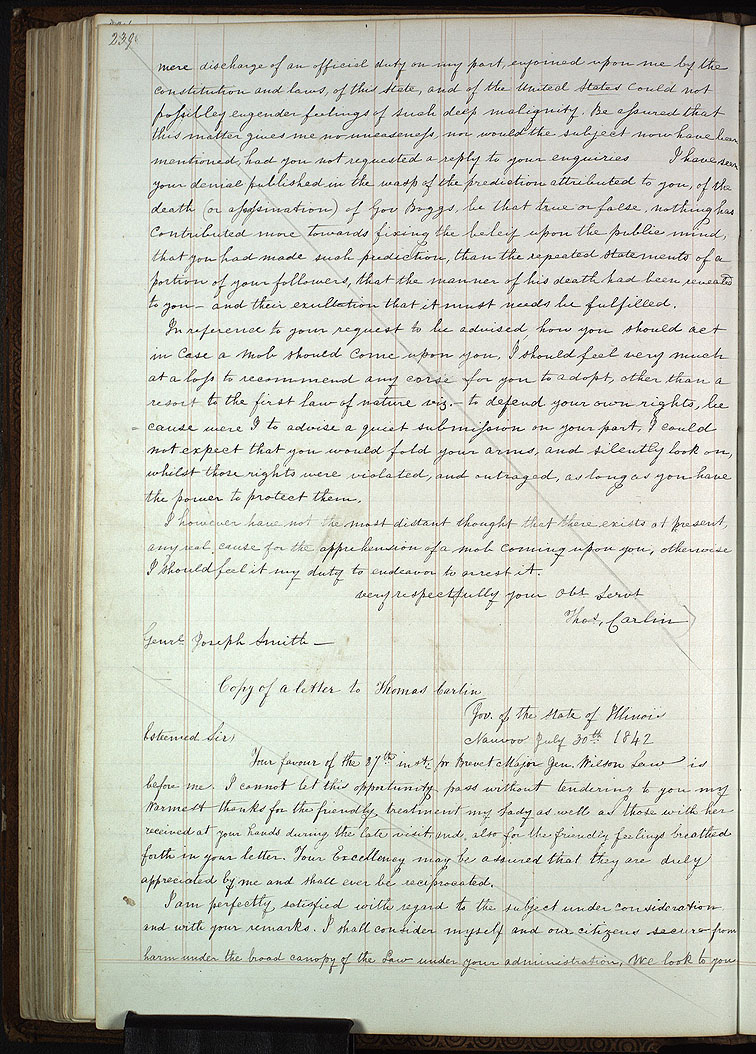 239
mere discharge of an official duty on my part, enjoined upon me by the
constitution and laws, of this State, and of the United States Could not
possibley engender feelings of such deep malignity. Be assured that
this matter gives me no uneaseness, nor would the subject now have been
mentioned, had you not requested a reply to your enquiries I have seen
your denial published in the wasp of the prediction attributed to you, of the
death (or assassination) of Gov Boggs, be that true or false, nothing has
Contributed more towards fixing the beleif upon the public mind,
that you had made such prediction, than the repeated statements of a
portion of your followers, that the manner of his death had been revealed
to you — and their exultation that it must needs be fulfilled.
In reference to your request to be advised, how you should act
in Case a mob should Come upon you, I should feel very much
at a loss to recommend any corse for you to adopt, other than a
resort to the first law of nature viz. — to defend your own rights, be
cause were I to advise a quiet submission on your part, I could
not expect that you would fold your arms, and silently look on,
whilst those rights were violated, and outraged, as long as you have
the power to protect them.
I however have not the most distant thought that there exists at present,
any real cause for the apprehension of a mob Coming upon you, otherwise
I should feel it my duty to endeavor to arrest it.
very respectfully your Obt Servt
Thos, Carlin
Genrl Joseph Smith —
Copy of a letter to Thomas Carlin
Gov. of the State of Illinois
Nauvoo July 30th 1842
Esteemed Sir,
Your favour of the 27th inst; pr Brevet Major Gen. Wilson Law is
before me. I cannot let this opportunity, pass without tendering to you my
Warmest thanks for the friendly treatment my Lady as well as those with her
received at your hands during the late visit, and, also for the friendly feelings breathed
forth in your letter. Your Excellency may be assured that they are duly
appreciated by me and shall ever be reciprocated.
I am perfectly satisfied with regard to the subject under consideration
and with your remarks. I shall consider myself and our citizens secure from
harm under the broad canopy of the Law under your administration, We look to you